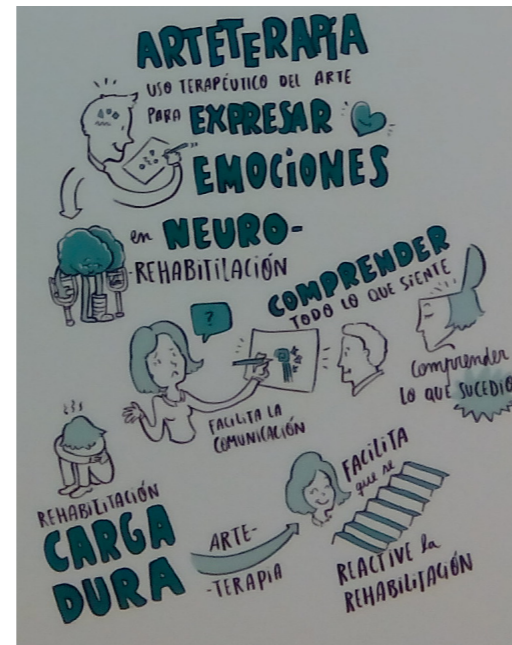 ARTETERAPIA
USO TERAPÉUTICO DEL ARTE
PARA EXPRESAR
EMOCIONES
en NEURO-
-REHABITILACIÓN
COMPRENDER
TODO LO QUE SIENTE
?
Comprender
LO QUE SUCEDIÓ
FACILITA LA
COMUNICACIÓN
REHABILITACIÓN
CARGA
DURA
ARTE-
-TERAPIA
FACILITA
que se
REACTIVE la
REHABILITACIÓN